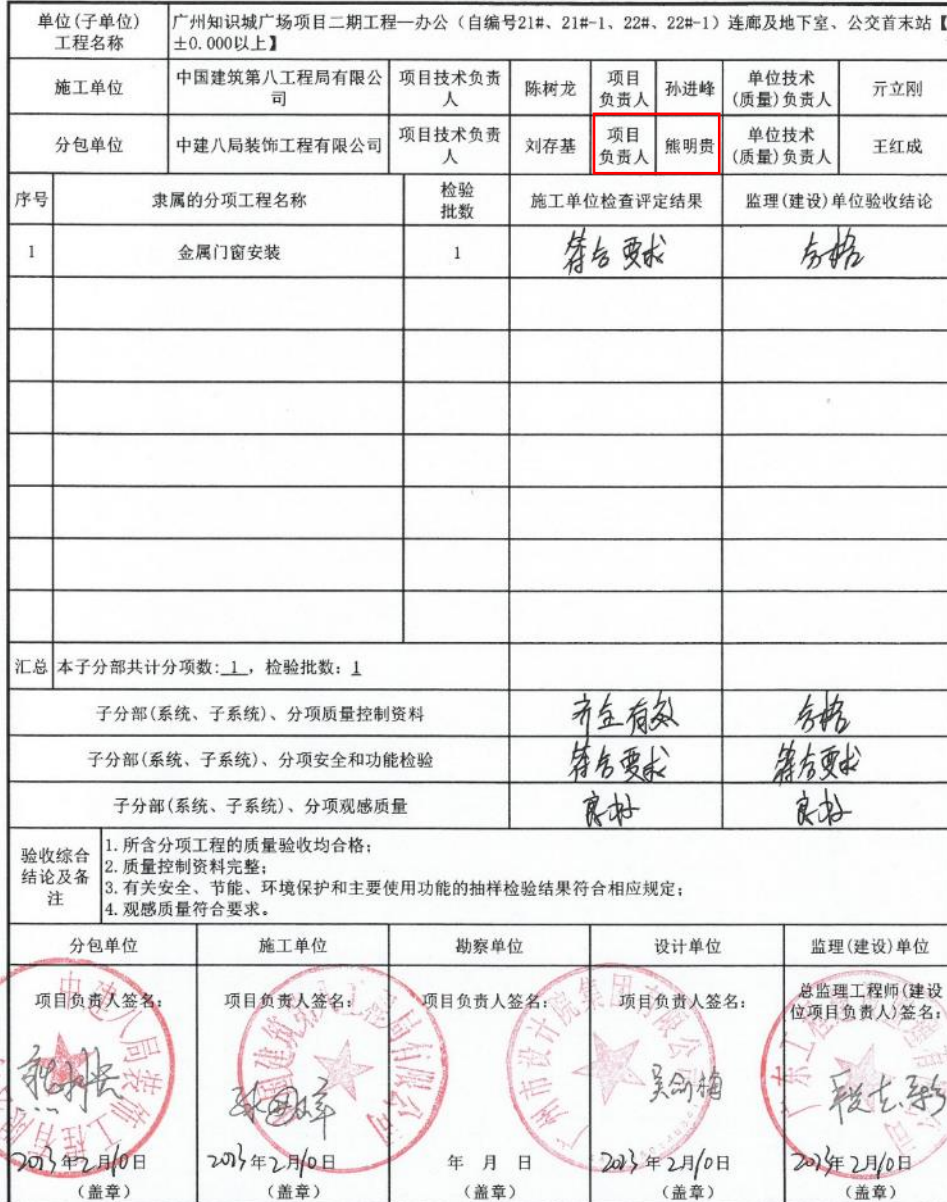 单位(子单位) 广州知识城广场项目二期工程—办公（自编号21#、21#-1、22#、22#-1）连廊及地下室、公交首末站【
工程名称 ±0.000以上】
施工单位 中国建筑第八工程局有限公司 项目技术负责人 陈树龙 项目负责人 孙进峰 单位技术(质量)负责人 亓立刚
分包单位 中建八局装饰工程有限公司 项目技术负责人 刘存基 项目负责人 熊明贵 单位技术(质量)负责人 王红成
序号 隶属的分项工程名称 检验批数 施工单位检查评定结果 监理(建设)单位验收结论
1 金属门窗安装 1 符合要求 合格
汇总 本子分部共计分项数: 1 ，检验批数: 1
子分部(系统、子系统)、分项质量控制资料 齐全有效 合格
子分部(系统、子系统)、分项安全和功能检验 符合要求 符合要求
子分部(系统、子系统)、分项观感质量 良好 良好
验收综合结论及备注
1. 所含分项工程的质量验收均合格;
2. 质量控制资料完整;
3. 有关安全、节能、环境保护和主要使用功能的抽样检验结果符合相应规定;
4. 观感质量符合要求。
分包单位 施工单位 勘察单位 设计单位 监理(建设)单位
项目负责人签名: 项目负责人签名: 项目负责人签名: 项目负责人签名: 总监理工程师(建设
位项目负责人)签名:
吴剑梅
2023年2月10日 2023年2月10日 年 月 日 2023年2月10日 2023年2月10日
(盖章) (盖章) (盖章) (盖章) (盖章)